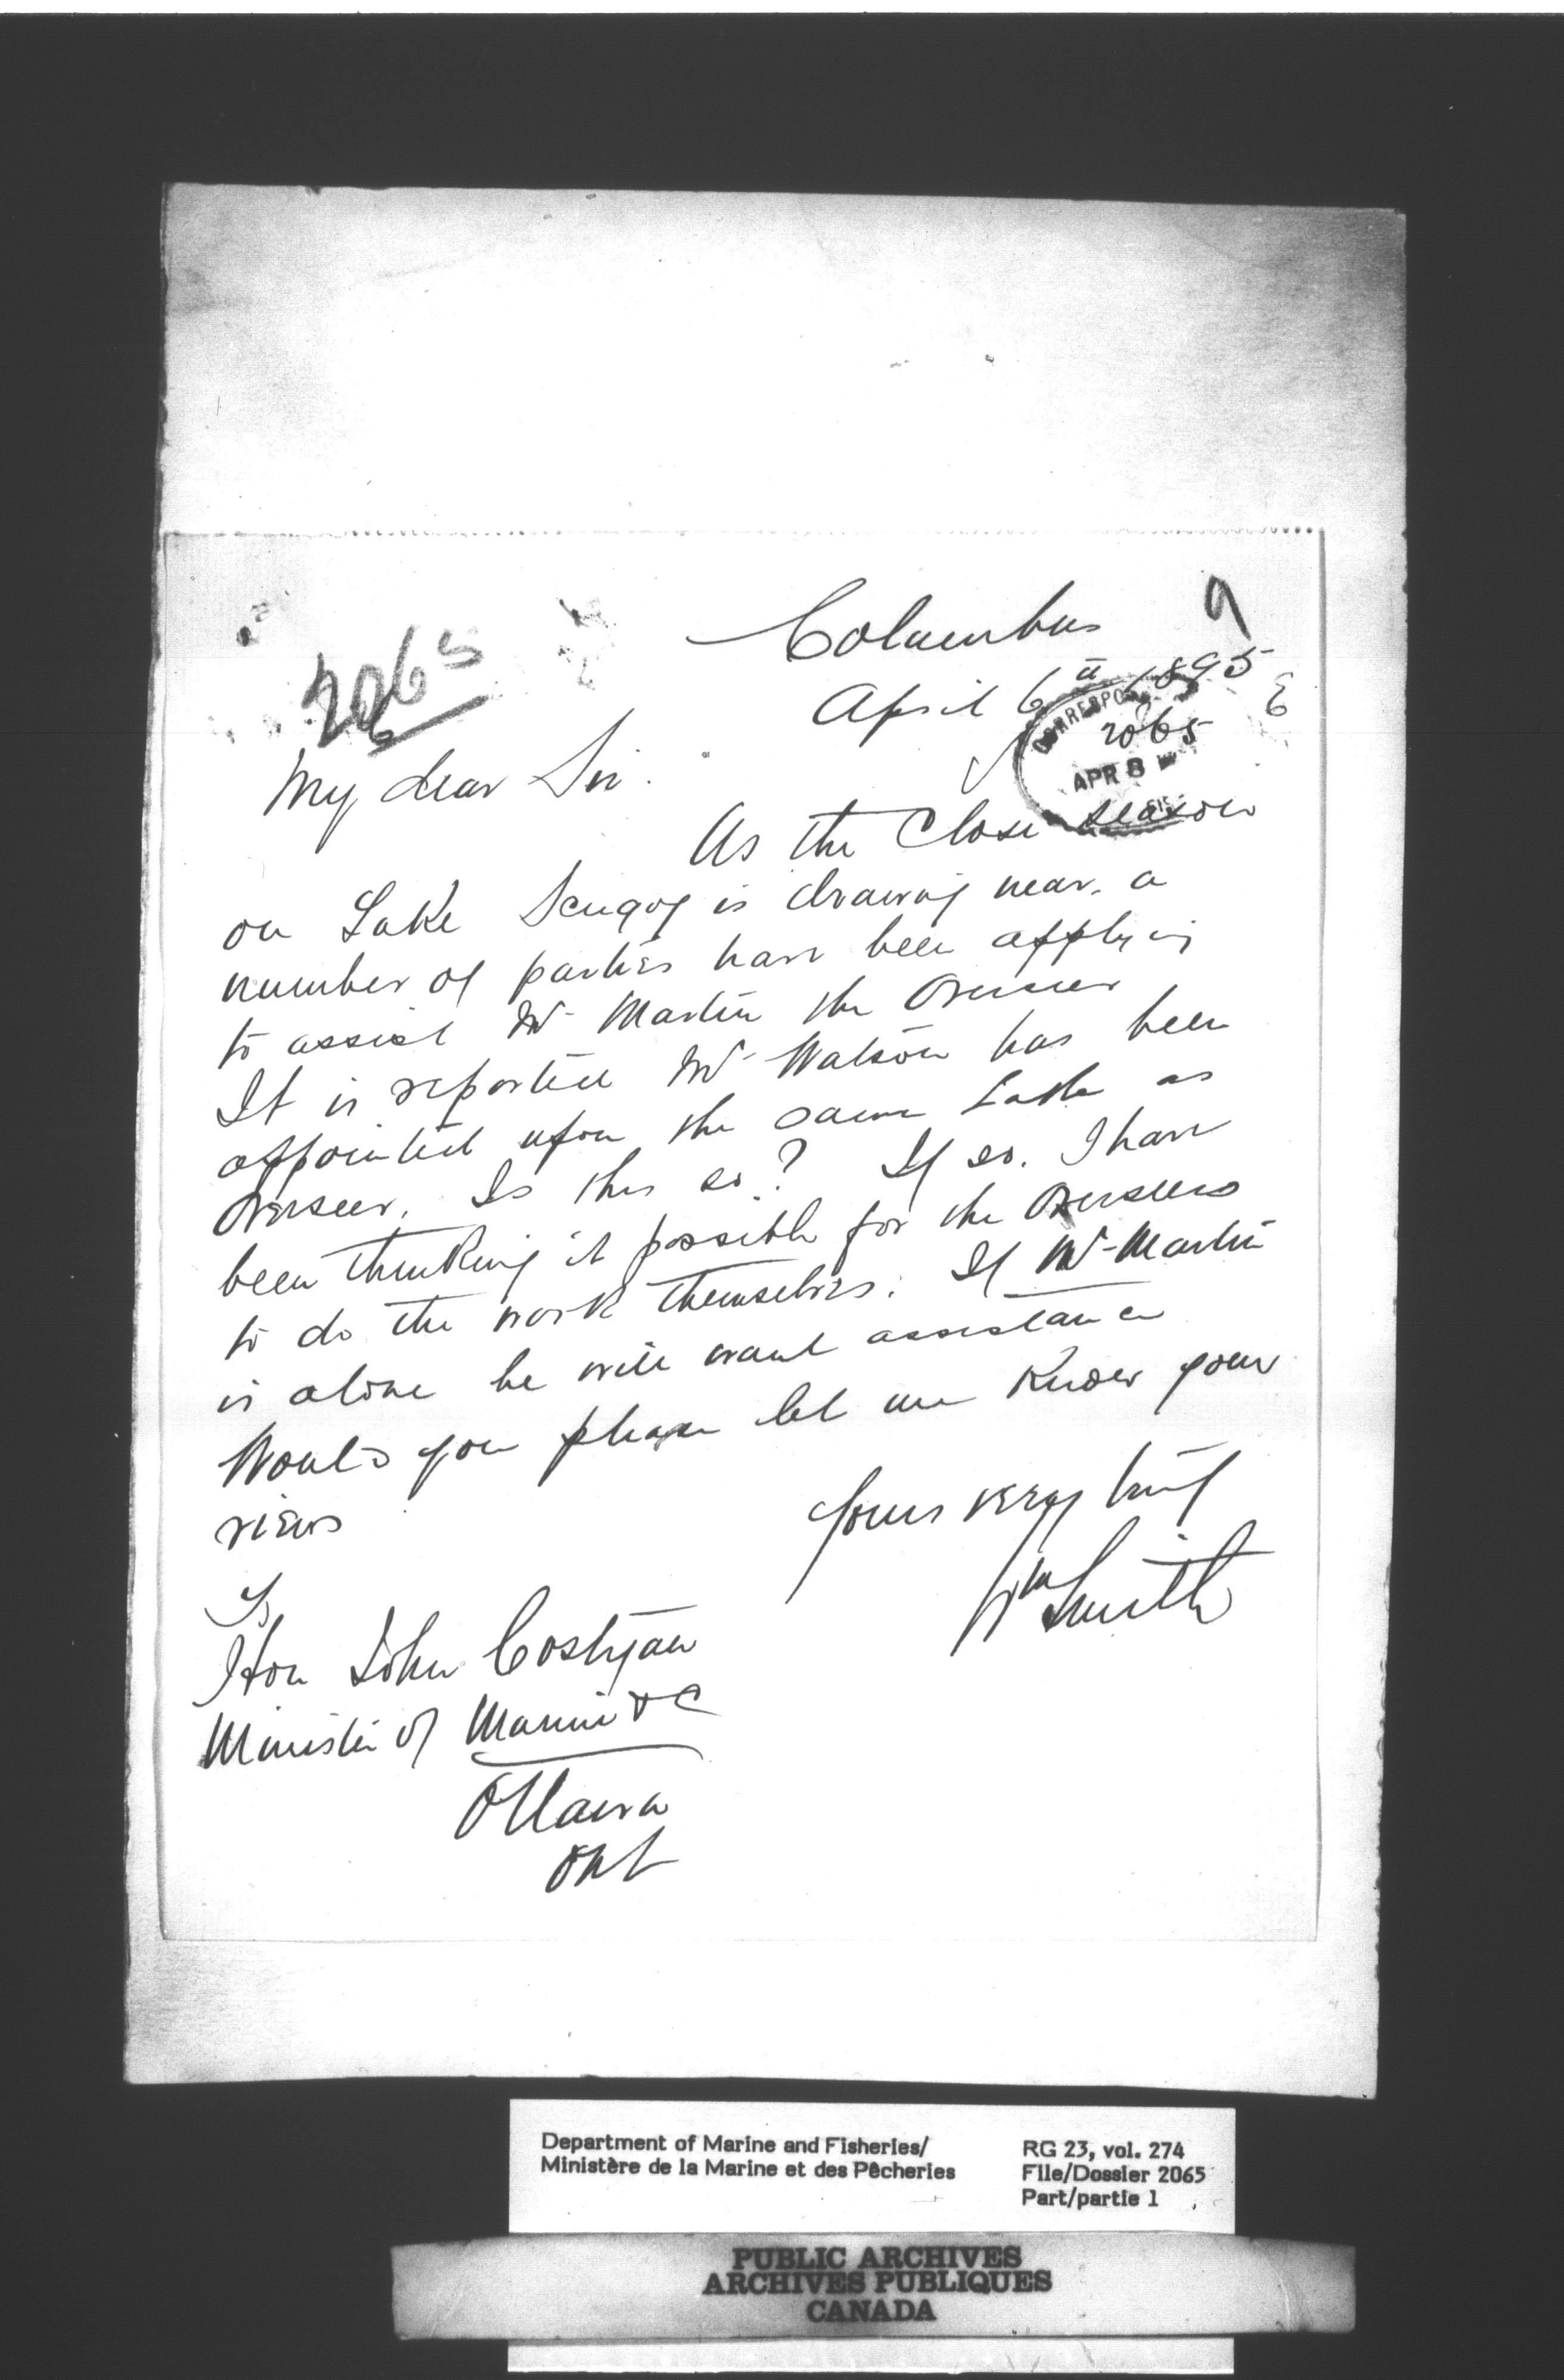 9
Columbus
April 6th 1895
2065
6
CORRESPO
2065
APR 8
My dear Sir.
As the Close season
on Lake Scugog is drawing near. a
number of parties have been applying
to assist Mr Martin the Overseer
It is reported Mr Watson has been
appointed upon the same Lake as
Overseer. Is this so? If so. I have
been thinking it possible for the Overseers
to do the work themselves. If Mr Martin
is alone he will want assistance
Would you please let me know your
views
Yours very truly
Wm Smith
To
Hon John Costigan
Minister of Marine & C
Ottawa
Ont
Department of Marine and Fisheries/
Ministère de la Marine et des Pêcheries
RG 23, vol. 274
File/Dossier 2065
Part/partie 1
PUBLIC ARCHIVES
ARCHIVES PUBLIQUES
CANADA